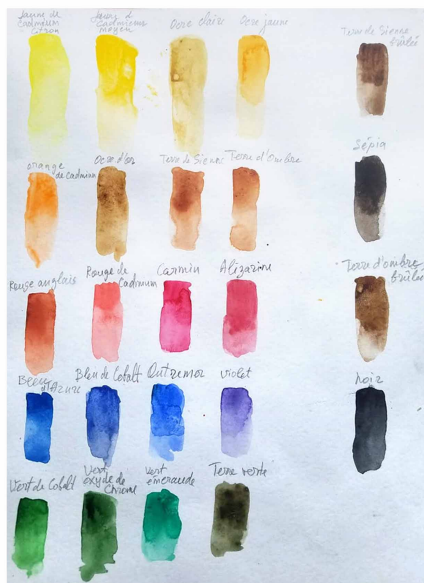 Jaune de
cadmium
citron
Jaune d
cadmium
moyen
Ocre claire
Ocre jaune
Terre de Sienne
brûlée
orange
de cadmium
Ocre d'or
Terre de Sienne
Terre d'Ombre
Sépia
Rouge anglais
Rouge de
Cadmium
Carmin
Alizarine
Terre d'ombre
brûlée
Bleu
d'azur
Bleu de Cobalt
Outremer
violet
noir
Vert de Cobalt
Vert
oxyde de
Chrome
Vert
émeraude
Terre verte